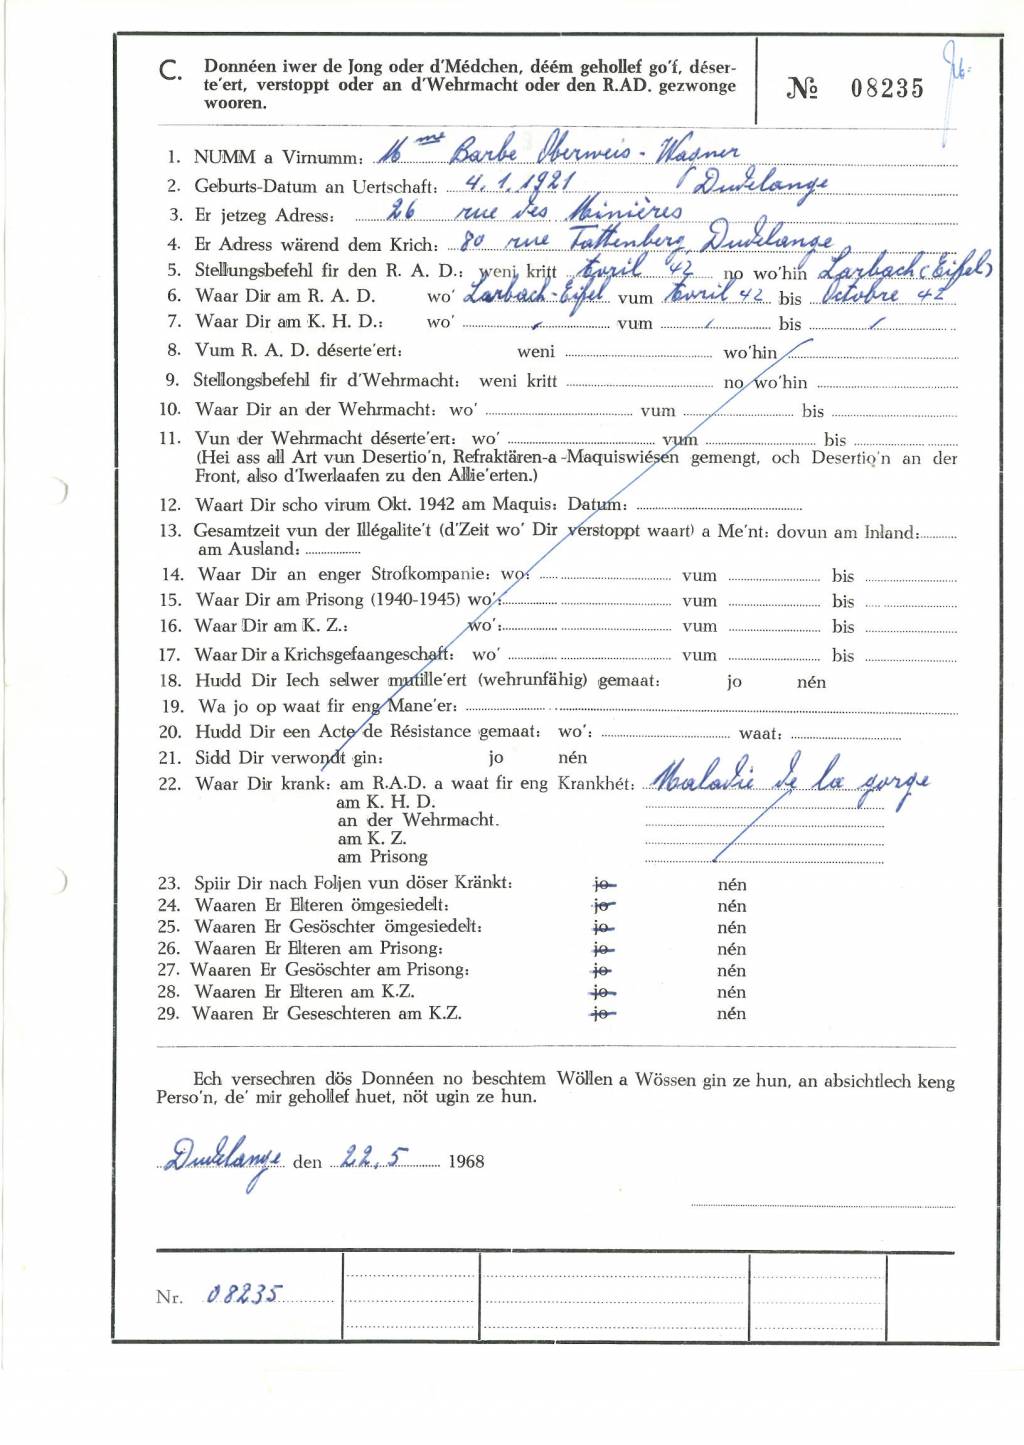 C. Donnéen iwer de Jong oder d'Médchen, déém gehollef go'f, déser-
te'ert, verstoppt oder an d'Wehrmacht oder den R.AD. gezwonge
wooren.
№ 08235
1. NUMM a Virnumm: Mme Barbe Oberweis - Wagner
2. Geburts-Datum an Uertschaft: 4.1.1921 Dudelange
3. Er jetzeg Adress: 26 rue des Minières
4. Er Adress wärend dem Krich: 80 rue Tattenberg, Dudelange
5. Stellungsbefehl fir den R. A. D.: weni kritt Avril 42 no wo'hin Larbach (Eifel)
6. Waar Dir am R. A. D. wo' Larbach-Eifel vum Avril 42 bis Octobre 42
7. Waar Dir am K. H. D.: wo' vum bis
8. Vum R. A. D. déserte'ert: weni wo'hin
9. Stellongsbefehl fir d'Wehrmacht: weni kritt no wo'hin
10. Waar Dir an der Wehrmacht: wo' vum bis
11. Vun der Wehrmacht déserte'ert: wo' vum bis
(Hei ass all Art vun Desertio'n, Refraktären-a -Maquiswiésen gemengt, och Desertio'n an der
Front, also d'Iwerlaafen zu den Allie'erten.)
12. Waart Dir scho virum Okt. 1942 am Maquis: Datum:
13. Gesamtzeit vun der Illégalite't (d'Zeit wo' Dir verstoppt waart) a Me'nt: dovun am Inland:
am Ausland:
14. Waar Dir an enger Strofkompanie: wo: vum bis
15. Waar Dir am Prisong (1940-1945) wo': vum bis
16. Waar Dir am K. Z.: wo': vum bis
17. Waar Dir a Krichsgefaangeschaft: wo' vum bis
18. Hudd Dir Iech selwer mutille'ert (wehrunfähig) gemaat: jo nén
19. Wa jo op waat fir eng Mane'er:
20. Hudd Dir een Acte de Résistance gemaat: wo': waat:
21. Sidd Dir verwondt gin: jo nén
22. Waar Dir krank: am R.A.D. a waat fir eng Krankhét: Maladie de la gorge
am K. H. D.
an der Wehrmacht.
am K. Z.
am Prisong
23. Spiir Dir nach Foljen vun döser Kränkt: jo nén
24. Waaren Er Elteren ömgesiedelt: jo nén
25. Waaren Er Gesöschter ömgesiedelt: jo nén
26. Waaren Er Elteren am Prisong: jo nén
27. Waaren Er Gesöschter am Prisong: jo nén
28. Waaren Er Elteren am K.Z. jo nén
29. Waaren Er Geseschteren am K.Z. jo nén
Ech versechren dös Donnéen no beschtem Wöllen a Wössen gin ze hun, an absichtlech keng
Perso'n, de' mir gehollef huet, nöt ugin ze hun.
Dudelange den 22.5 1968
Nr. 08235